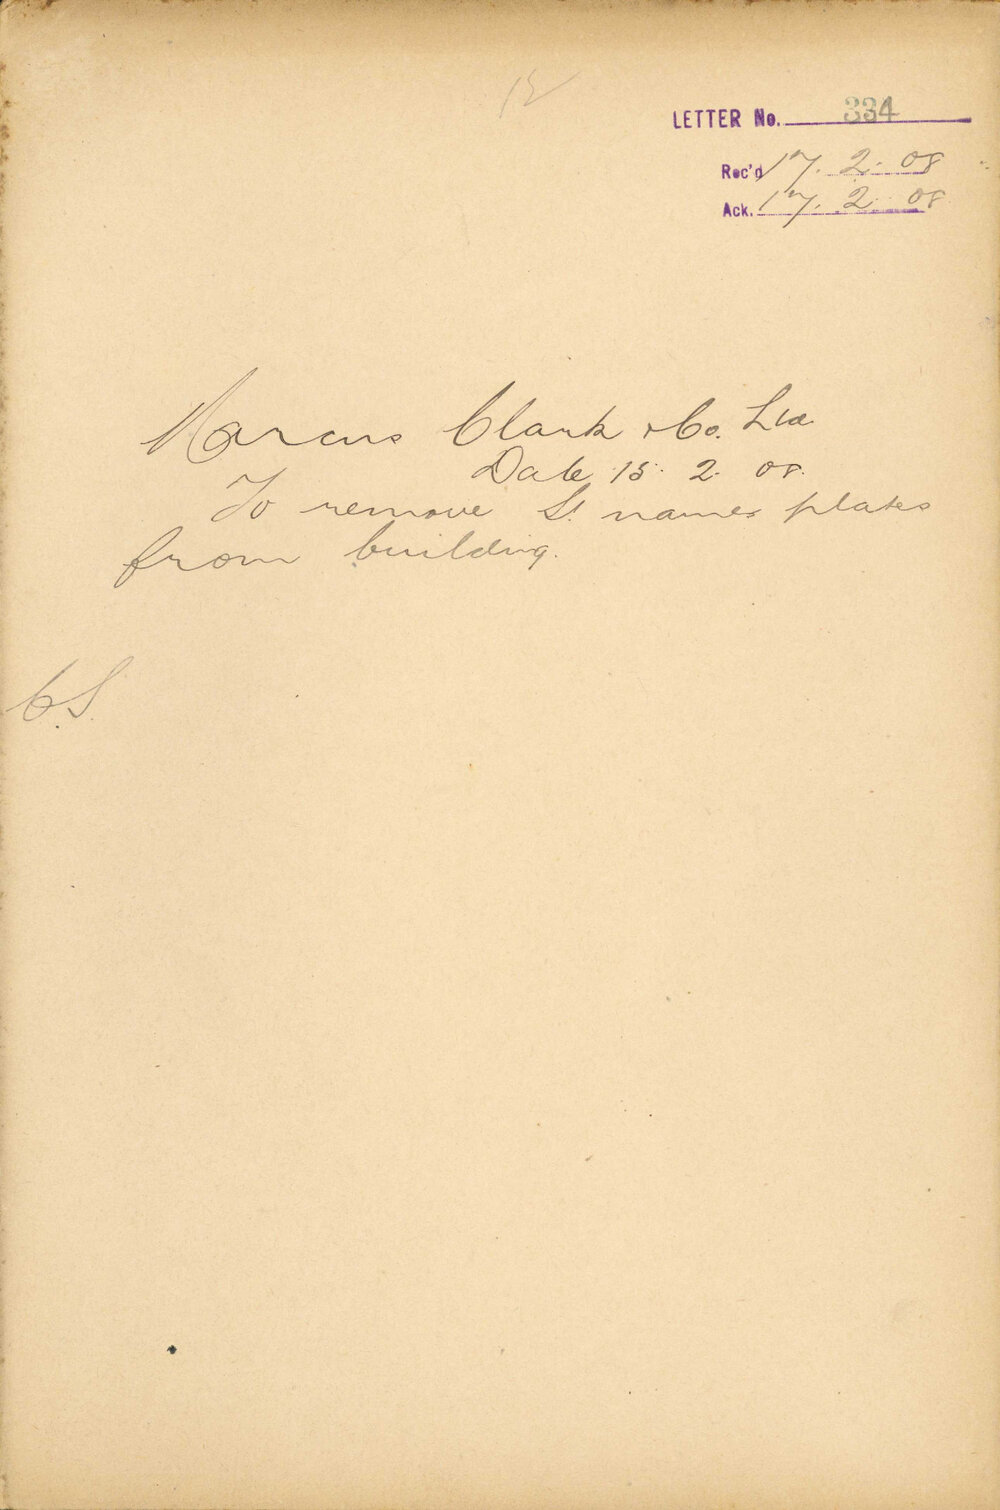 LETTER No. 334
Rec'd 17. 2. 08
Ack. 17. 2. 08
Marcus Clark & Co. Ltd
Date 15. 2. 08.
To remove St. names plates
from building.
C.S.